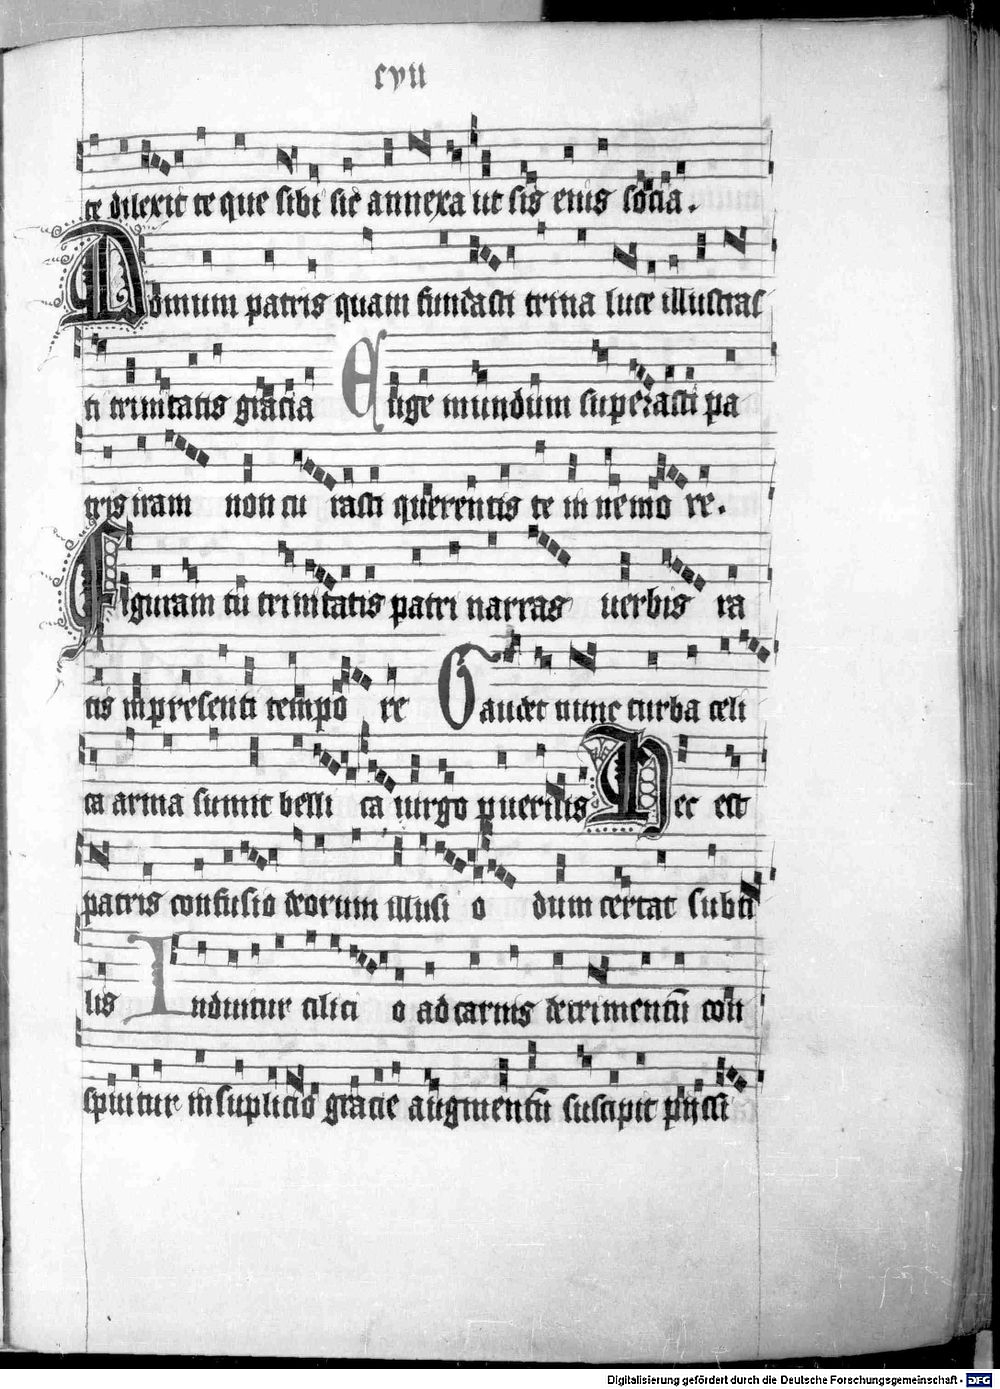 cvii
te dilexit te que sibi sic annexa ut sis eius socia.
Domum patris quam fundasti trina luce illustras
ti trinitatis gracia Euge mundum superasti pa
tris iram non cu rasti querentis te in nemo re.
Figuram tu trinitatis patri narras uerbis ra
tis in presenti tempo re Gaudet nunc turba celi
ca arma sumit belli ca uirgo puerilis Hec est
patris confusio deorum illusi o dum certat subti
lis Induitur cilici o ad carnis detrimentū con
spuitur in suplicio gracie augmentū suscipit
Digitalisierung gefördert durch die Deutsche Forschungsgemeinschaft - DFG